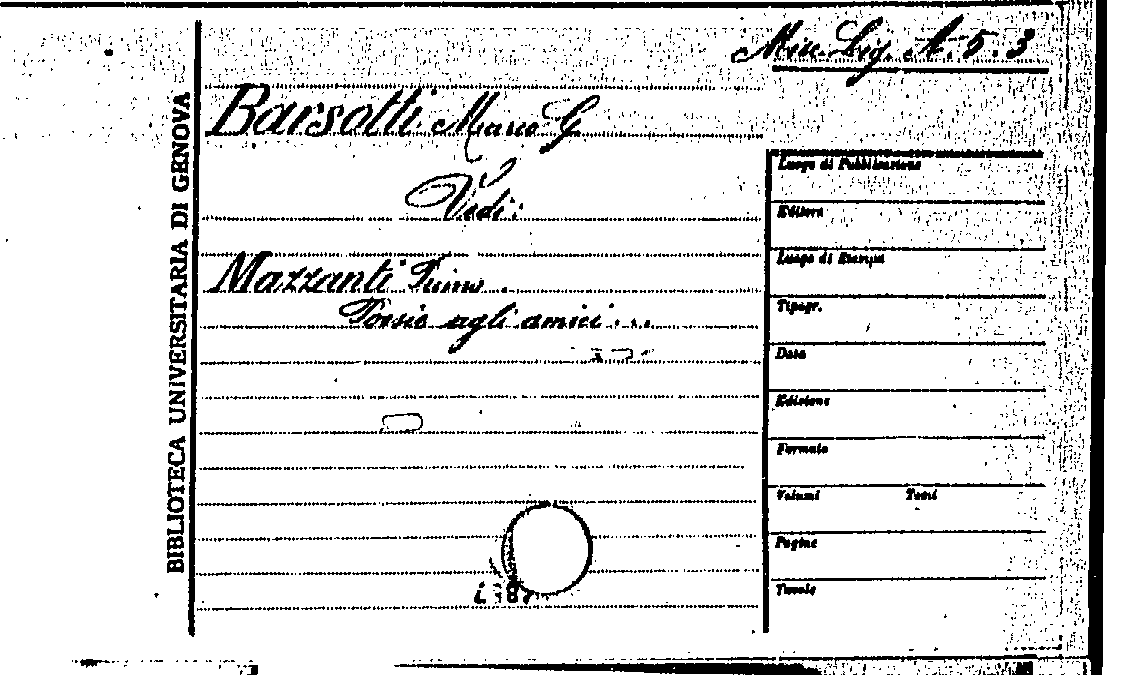 Misc. Lig. A. 5. 3
BIBLIOTECA UNIVERSITARIA DI GENOVA
Barsotti Mario G
Vedi:
Mazzanti Primo.
Poesie agli amici...
Luogo di Pubblicazione
Editore
Luogo di Stampa
Tipogr.
Data
Edizione
Formato
Volumi Tomi
Pagine
Tavole